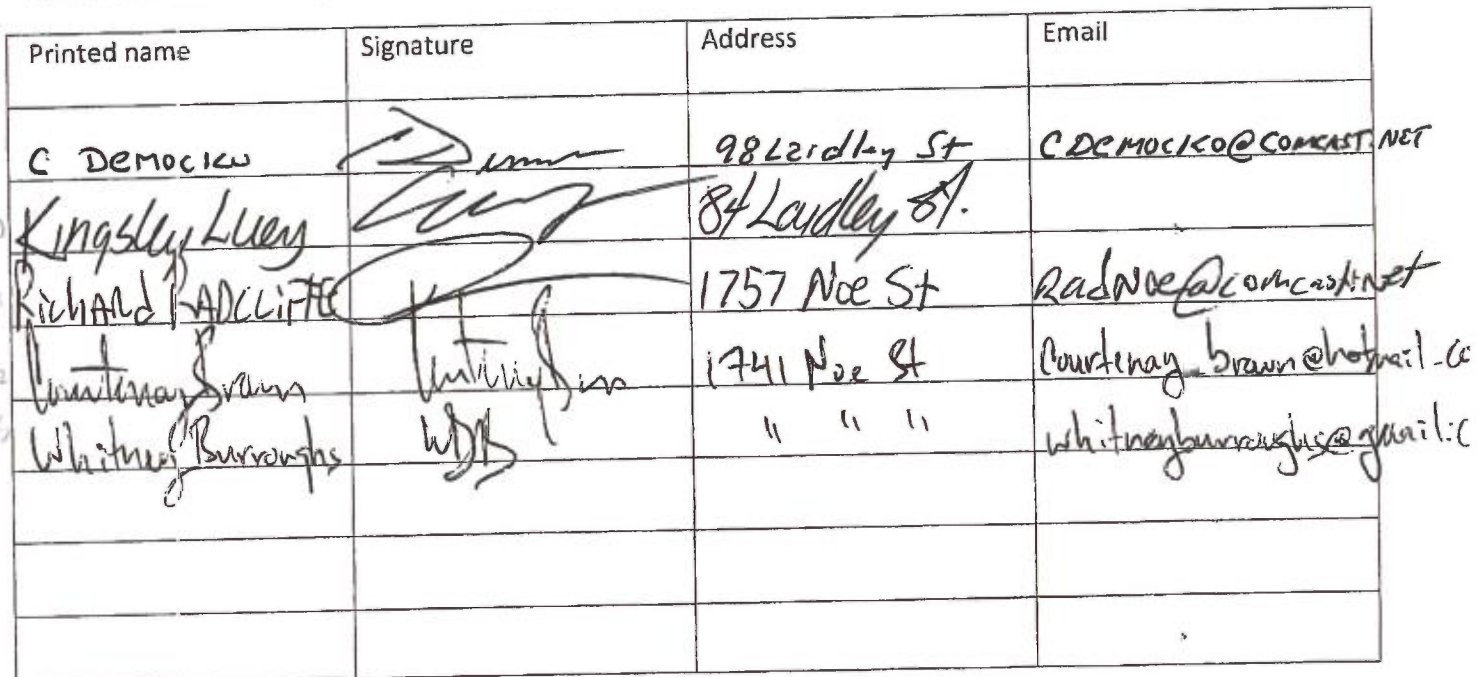 Printed name Signature Address Email
C DEMOCKO 98 Laidley St CDEMOCKO@COMCAST.NET
Kingsley Luey 84 Laidley St.
Richard RADCLIFFE 1757 Noe St RadNoe@comcast.net
Courtenay Brown 1741 Noe St Courtenay_brown@hotmail.co
Whitney Burroughs WDB " " " whitneyburroughs@gmail.c